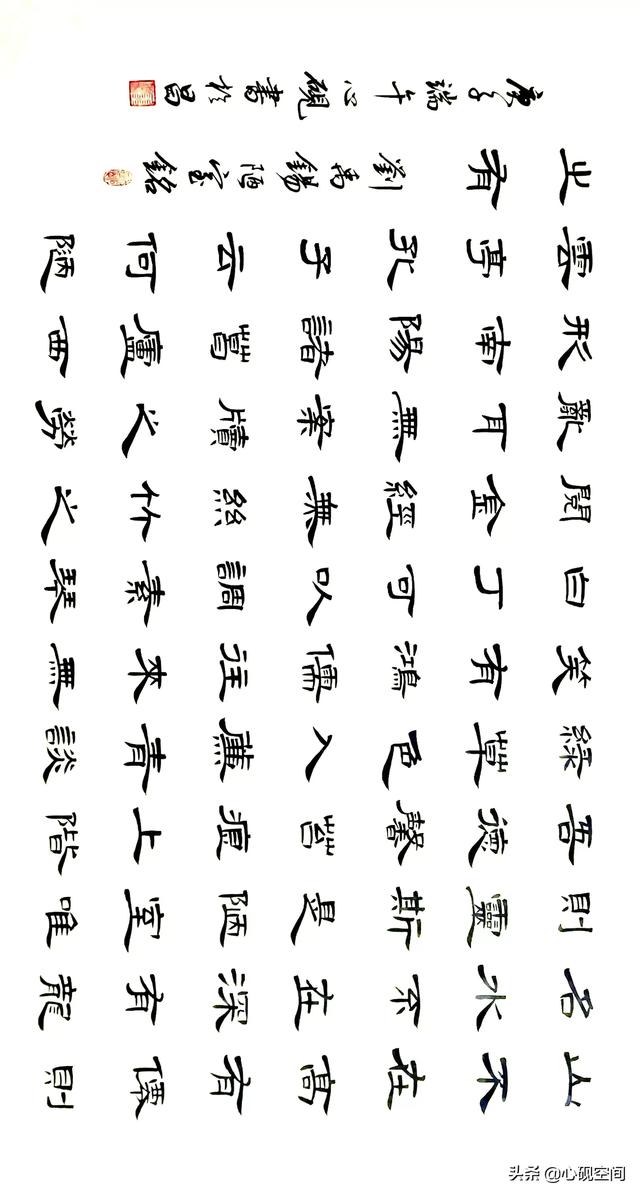 山不在高有僊則
名水不在深有龍
則靈斯是陋室唯
吾德馨苔痕上階
綠草色入簾青談
笑有鴻儒往來無
白丁可以調素琴
閱金經無絲竹之
亂耳無案牘之勞
形南陽諸葛廬西
雲亭孔子云何陋
之有
劉禹錫陋室銘
庚子端午心硯書於昌
头条 @心砚空间